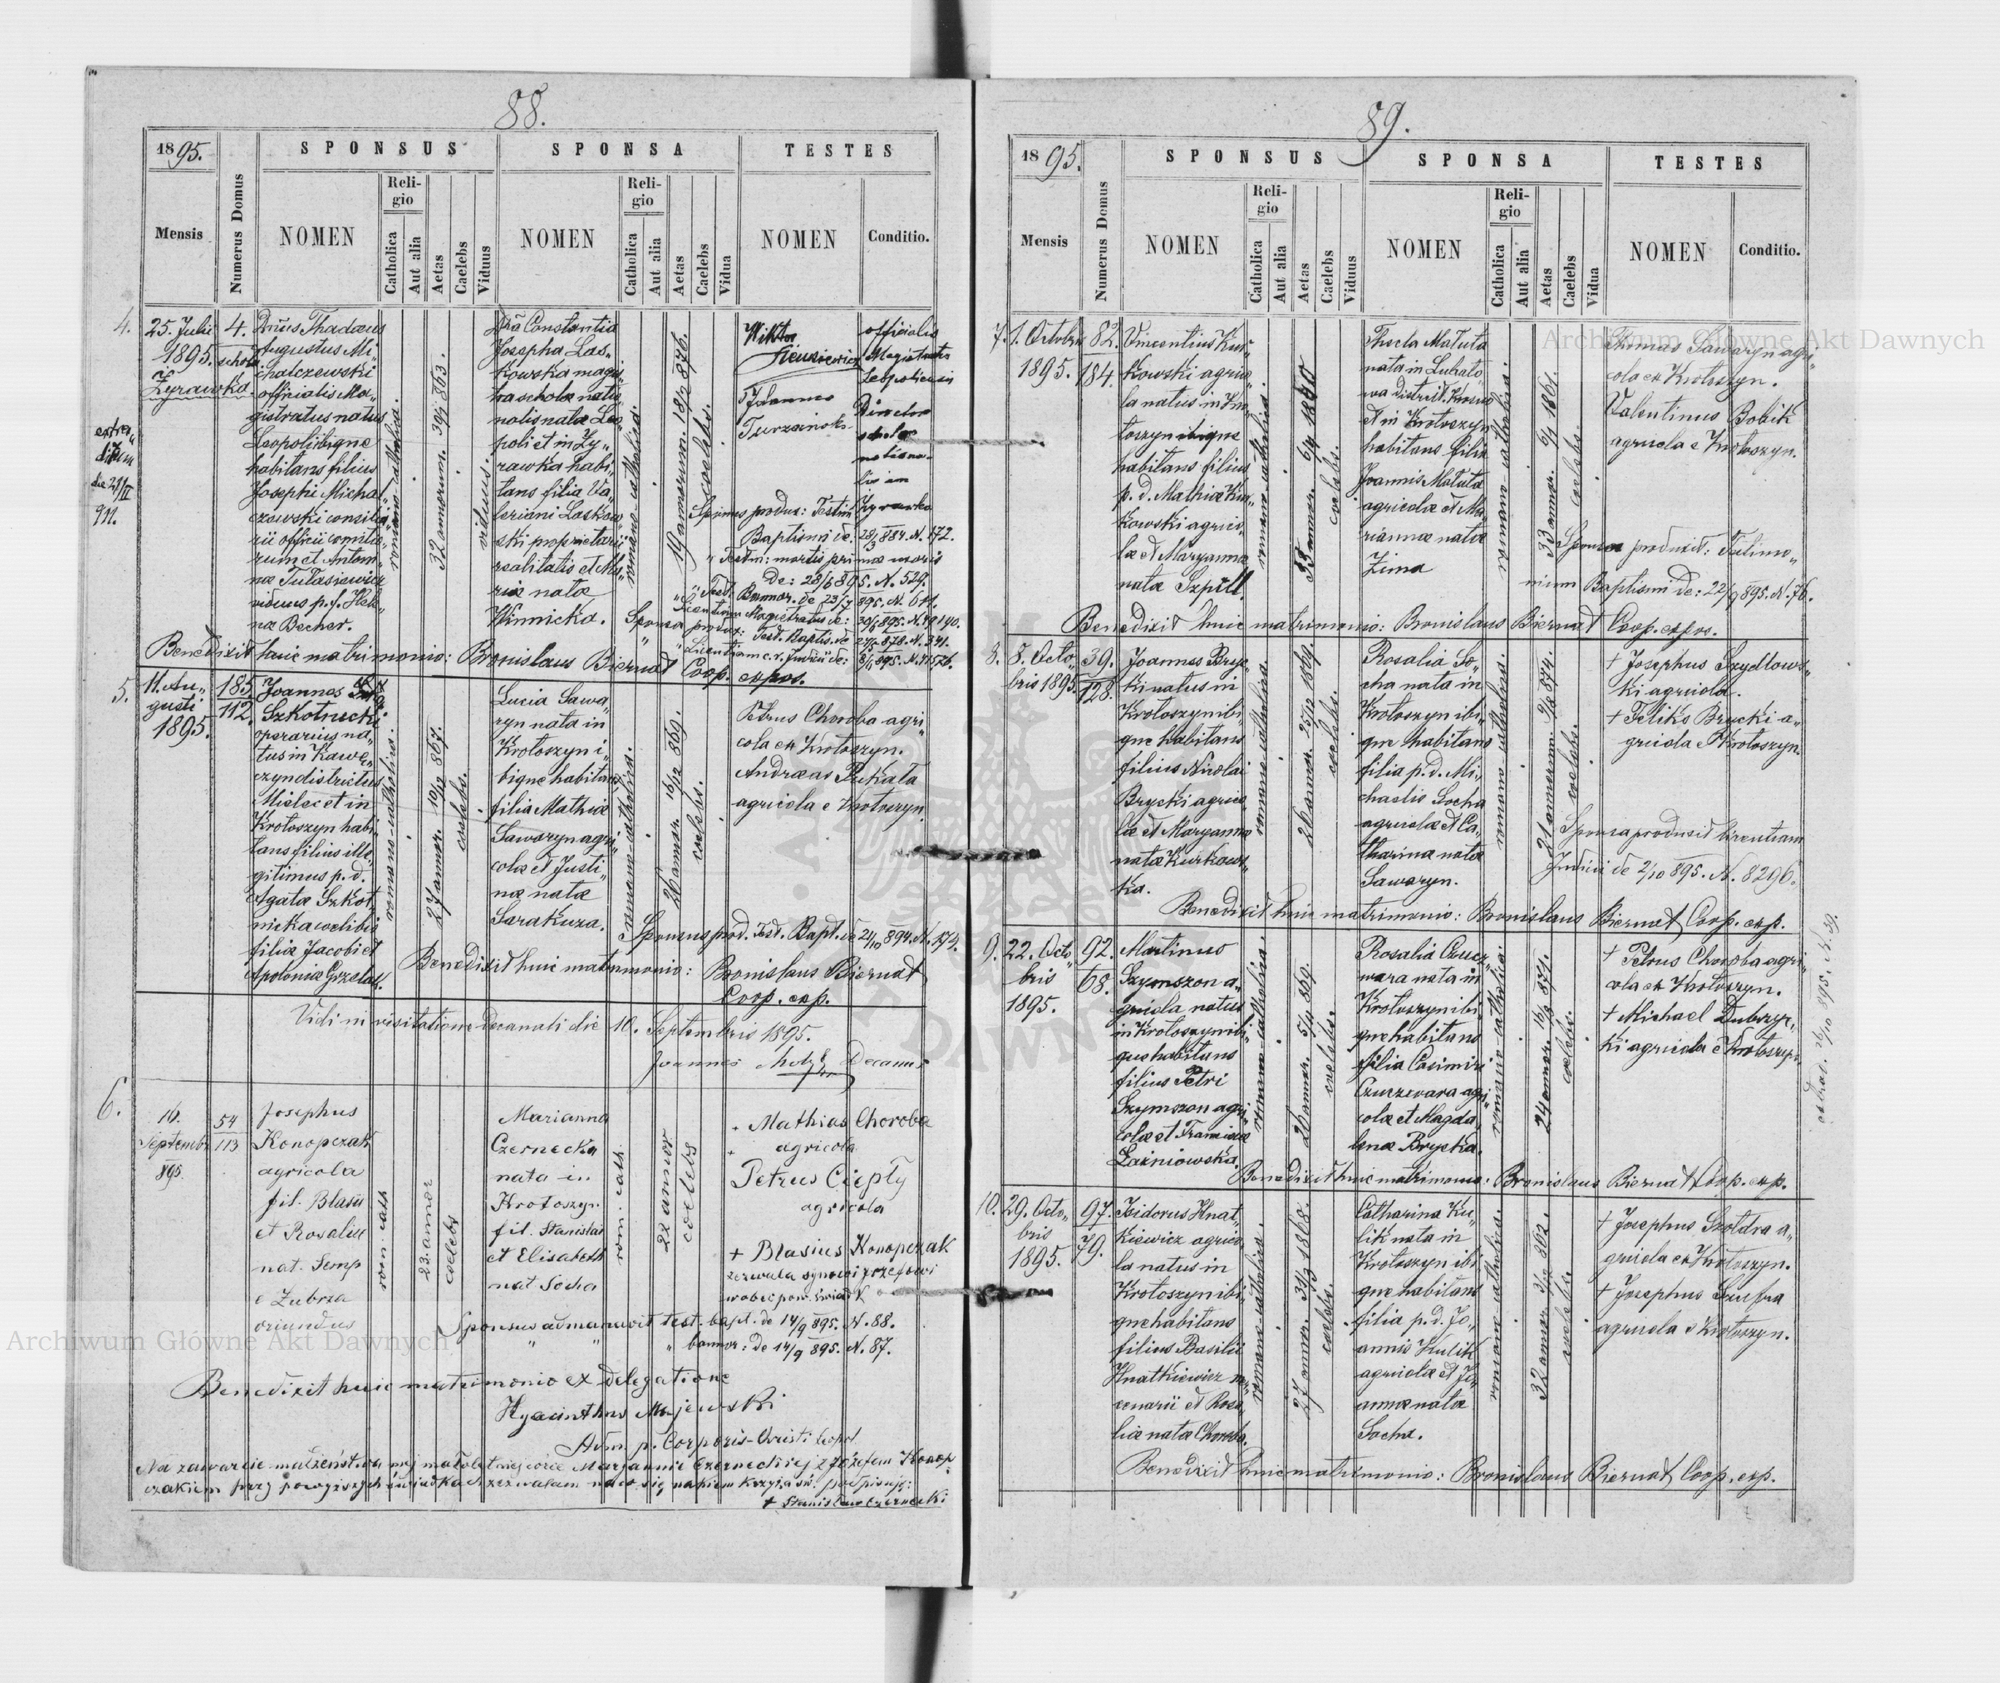 88.
1895.
SPONSUS
SPONSA
TESTES
Mensis
Numerus Domus
NOMEN
Religio
Catholica
Aut alia
Aetas
Caelebs
Viduus
NOMEN
Religio
Catholica
Aut alia
Aetas
Caelebs
Vidua
NOMEN
Conditio.
4.
25. Julii
1895.
Żyrawka
4.
schola
Thadæus
Augustus Mi„
chalczewski
officialis Ma„
gistratus natus
Leopoli ibique
habitans filius
Josephi Michal„
czewski consilia„
rii officii comitio„
rum et Antoni„
næ Tułasiewicz
viduus p. f. Hele„
næ Becher.
romano-catholica.
32 annorum.
viduus.
Constantia
Josepha Las„
kowska magis„
tra scholæ natio„
nalis nata Leo„
poli et in Ży„
rawka habi„
tans filia Va„
leriani Laskow„
ski proprietarii
realitatis et Ma„
riæ nata
Winnicka.
romano-catholica.
19 annorum. 18/2 876.
cælebs.
Wiktor
officialis
Magistratus
Leopoliensis
Joannes
Director
scholæ
nationa„
lis in
Żyrawka
Sponsus produx: Testim
Baptismi de: 28/3 884. N. 172.
„ Testim: mortis primæ uxoris
de: 28/6 895. N. 529.
Benedixit huic matrimonio: Bronislaus Biernat Coop. expos.
5.
11. Au„
gusti
1895.
185
112
Joannes
Szkotnicki
operarius na„
tus in Kawę„
czyn districtus
Mielec et in
Krotoszyn habi„
tans filius ille„
gitimus p. d.
Agatæ Szkot„
nicka cælibis
filiæ Jacobi et
Apoloniæ Grzelak.
romano-catholica.
27 annor. 10/12 867.
cælebs.
Lucia Sawa„
ryn nata in
Krotoszyn i„
bique habitans
filia Mathiæ
Sawaryn agri„
colæ et Justi„
næ nata
Sarakuza.
romano-catholica.
26 annor. 16/12 869.
cælebs.
Petrus Choroba agri„
cola ex Krotoszyn.
Andreas Pukała
agricola e Krotoszyn.
Sponsus prod. Test. Bapt. de 24/10 894. N. 174.
Benedixit huic matrimonio: Bronislaus Biernat
Coop. exp.
Vidi in visitatione decanali die 10. Septembris 1895.
Joannes Decanus
6.
16.
Septembr
895.
54
113
Josephus
Konopczak
agricola
fil. Blasii
et Rosaliæ
nat. Semp
e Zubrza
oriundus
rom-cath
23 annor
cælebs
Marianna
Czernecka
nata in
Krotoszyn
fil. Stanislai
et Elisabeth
nat Socha
rom. cath
22 annor
coelebs
Mathias Choroba
agricola
Petrus Ciepły
agricola
+ Blasius Konopczak
zezwala synowi Józefowi
wobec pow. świadk
Sponsus admanuavit test. bapt. de 14/9 895. N. 88.
„ „ „ bannor: de 14/9 895. N. 87.
Benedixit huic matrimonio ex delegatione
Hyacinthus Majewski
Adm. p. Corporis-Christi Leopol.
Na zawarcie małżeństwa mej małoletniej córce Maryannie Czerneckiej z Józefem Konop„
czakiem przy powyższych świadkach zezwalam na co się znakiem krzyża św. podpisuję:
+ Stanisław Czernecki
89.
1895.
SPONSUS
SPONSA
TESTES
Mensis
Numerus Domus
NOMEN
Religio
Catholica
Aut alia
Aetas
Caelebs
Viduus
NOMEN
Religio
Catholica
Aut alia
Aetas
Caelebs
Vidua
NOMEN
Conditio.
7.
1. Octobris
1895.
82.
184.
Vincentius Kuł„
kowski agrico„
la natus in Kro„
toszyn ibique
habitans filius
p. d. Mathiæ Kuł„
kowski agrico„
læ et Maryannæ
nata Szpill.
romano-catholica.
cælebs.
Thecla Matuła
nata in Lubato„
wa district. Krosno
et in Krotoszyn
habitans filia
Joannis Matuła
agricolæ et Ma„
riannæ nata
Zima
romano-catholica.
33 annor. 6/1 1861.
cælebs.
Thomas Sawaryn agri„
cola ex Krotoszyn.
Valentinus Bobik
agricola e Krotoszyn.
Sponsa produxit: Testimo„
nium Baptismi de: 22/9 895. N. 76.
Benedixit huic matrimonio: Bronislaus Biernat Coop. expos.
8.
8. Octo„
bris 1895.
39.
128.
Joannes Bryc„
ki natus in
Krotoszyn ibi„
que habitans
filius Nicolai
Brycki agrico„
læ et Maryannæ
nata Kurkows„
ka.
romano-catholica.
26 annor. 25/10 1869.
cælebs.
Rosalia So„
cha nata in
Krotoszyn ibi„
que habitans
filia p. d. Mi„
chaelis Socha
agricolæ et Ca„
tharinæ nata
Sawaryn.
romano-catholica.
21 annorum.
cælebs.
+ Josephus Szydłows„
ki agricola.
+ Feliks Brycki a„
gricola e Krotoszyn.
Sponsa produxit licentiam
Judicii de 2/10 895. N. 8296.
Benedixit huic matrimonio: Bronislaus Biernat Coop. exp.
9.
22. Octo„
bris
1895.
92.
68.
Martinus
Szymszon a„
gricola natus
in Krotoszyn ibi„
que habitans
filius Petri
Szymszon agri„
colæ et Franciscæ
Łaźniowska.
romano-catholica.
26 annor. 5/11 869.
cælebs.
Rosalia Czucz„
wara nata in
Krotoszyn ibi„
que habitans
filia Casimiri
Czuczwara agri„
colæ et Magda„
lenæ Brycka.
romano-catholica.
24 annor. 16/8 871.
cælebs.
+ Petrus Choroba agri„
cola ex Krotoszyn.
+ Michael Dubczyc„
ki agricola e Krotoszyn.
Benedixit huic matrimonio: Bronislaus Biernat Coop. exp.
10.
29. Octo„
bris
1895.
97.
79.
Isidorus Hnat„
kiewicz agrico„
la natus in
Krotoszyn ibi„
que habitans
filius Basilii
Hnatkiewicz mer„
cenarii et Rosa„
liæ nata Choroba.
romano-catholica.
27 annor. 31/3 1868.
cælebs.
Catharina Ku„
lik nata in
Krotoszyn ibi„
que habitans
filia p. d. Jo„
annis Kulik
agricolæ et Jo„
annæ nata
Socha.
romano-catholica.
32 annor. 3/12 862.
cælebs.
+ Josephus Szołdra a„
gricola ex Krotoszyn.
+ Josephus
agricola e Krotoszyn.
Benedixit huic matrimonio: Bronislaus Biernat Coop. exp.
Archiwum Główne Akt Dawnych
Archiwum Główne Akt Dawnych